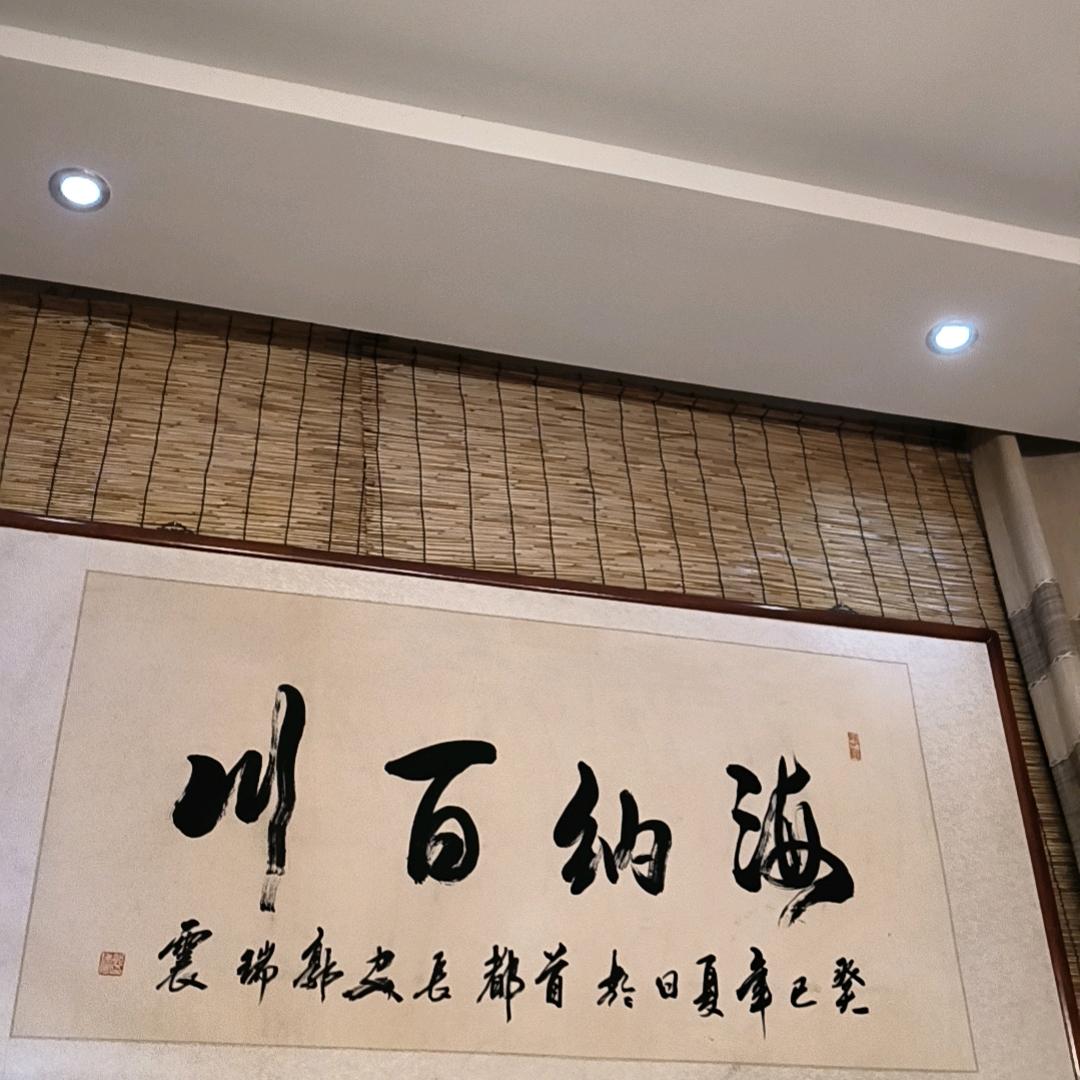 海纳百川
癸巳年夏日於首都長安郭瑞震